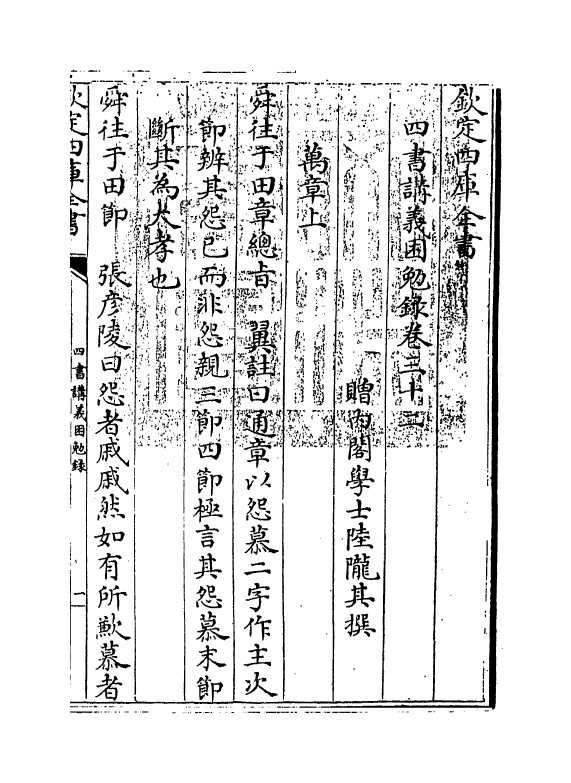 欽定四庫全書
四書講義困勉錄卷三十二
贈內閣學士陸隴其撰
萬章上
舜往于田章總旨　翼註曰通章以怨慕二字作主次
節辨其怨己而非怨親三節四節極言其怨慕末節
斷其為大孝也
舜往于田節　張彥陵曰怨者戚戚然如有所歉慕者
欽定四庫全書
四書講義困勉錄
一